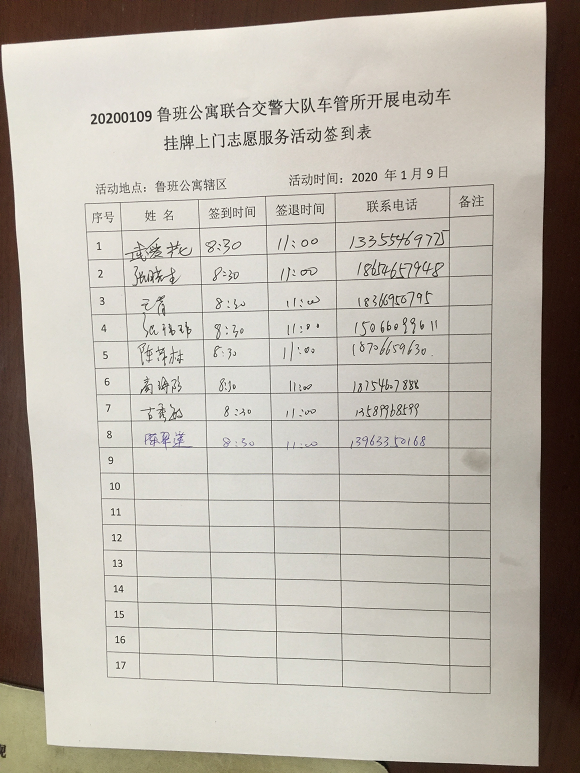 20200109 鲁班公寓联合交警大队车管所开展电动车
挂牌上门志愿服务活动签到表
活动地点：鲁班公寓辖区 活动时间：2020 年 1 月 9 日
序号 姓 名 签到时间 签退时间 联系电话 备注
1 8:30 11:00 13355469775
2 8:30 11:00 18654657948
3 8:30 11:00
4 8:30 11:00
5 8:30 11:00 18706659630
6 8:30 11:00
7 8:30 11:00 13589968599
8 8:30 11:00 13963350168
9
10
11
12
13
14
15
16
17